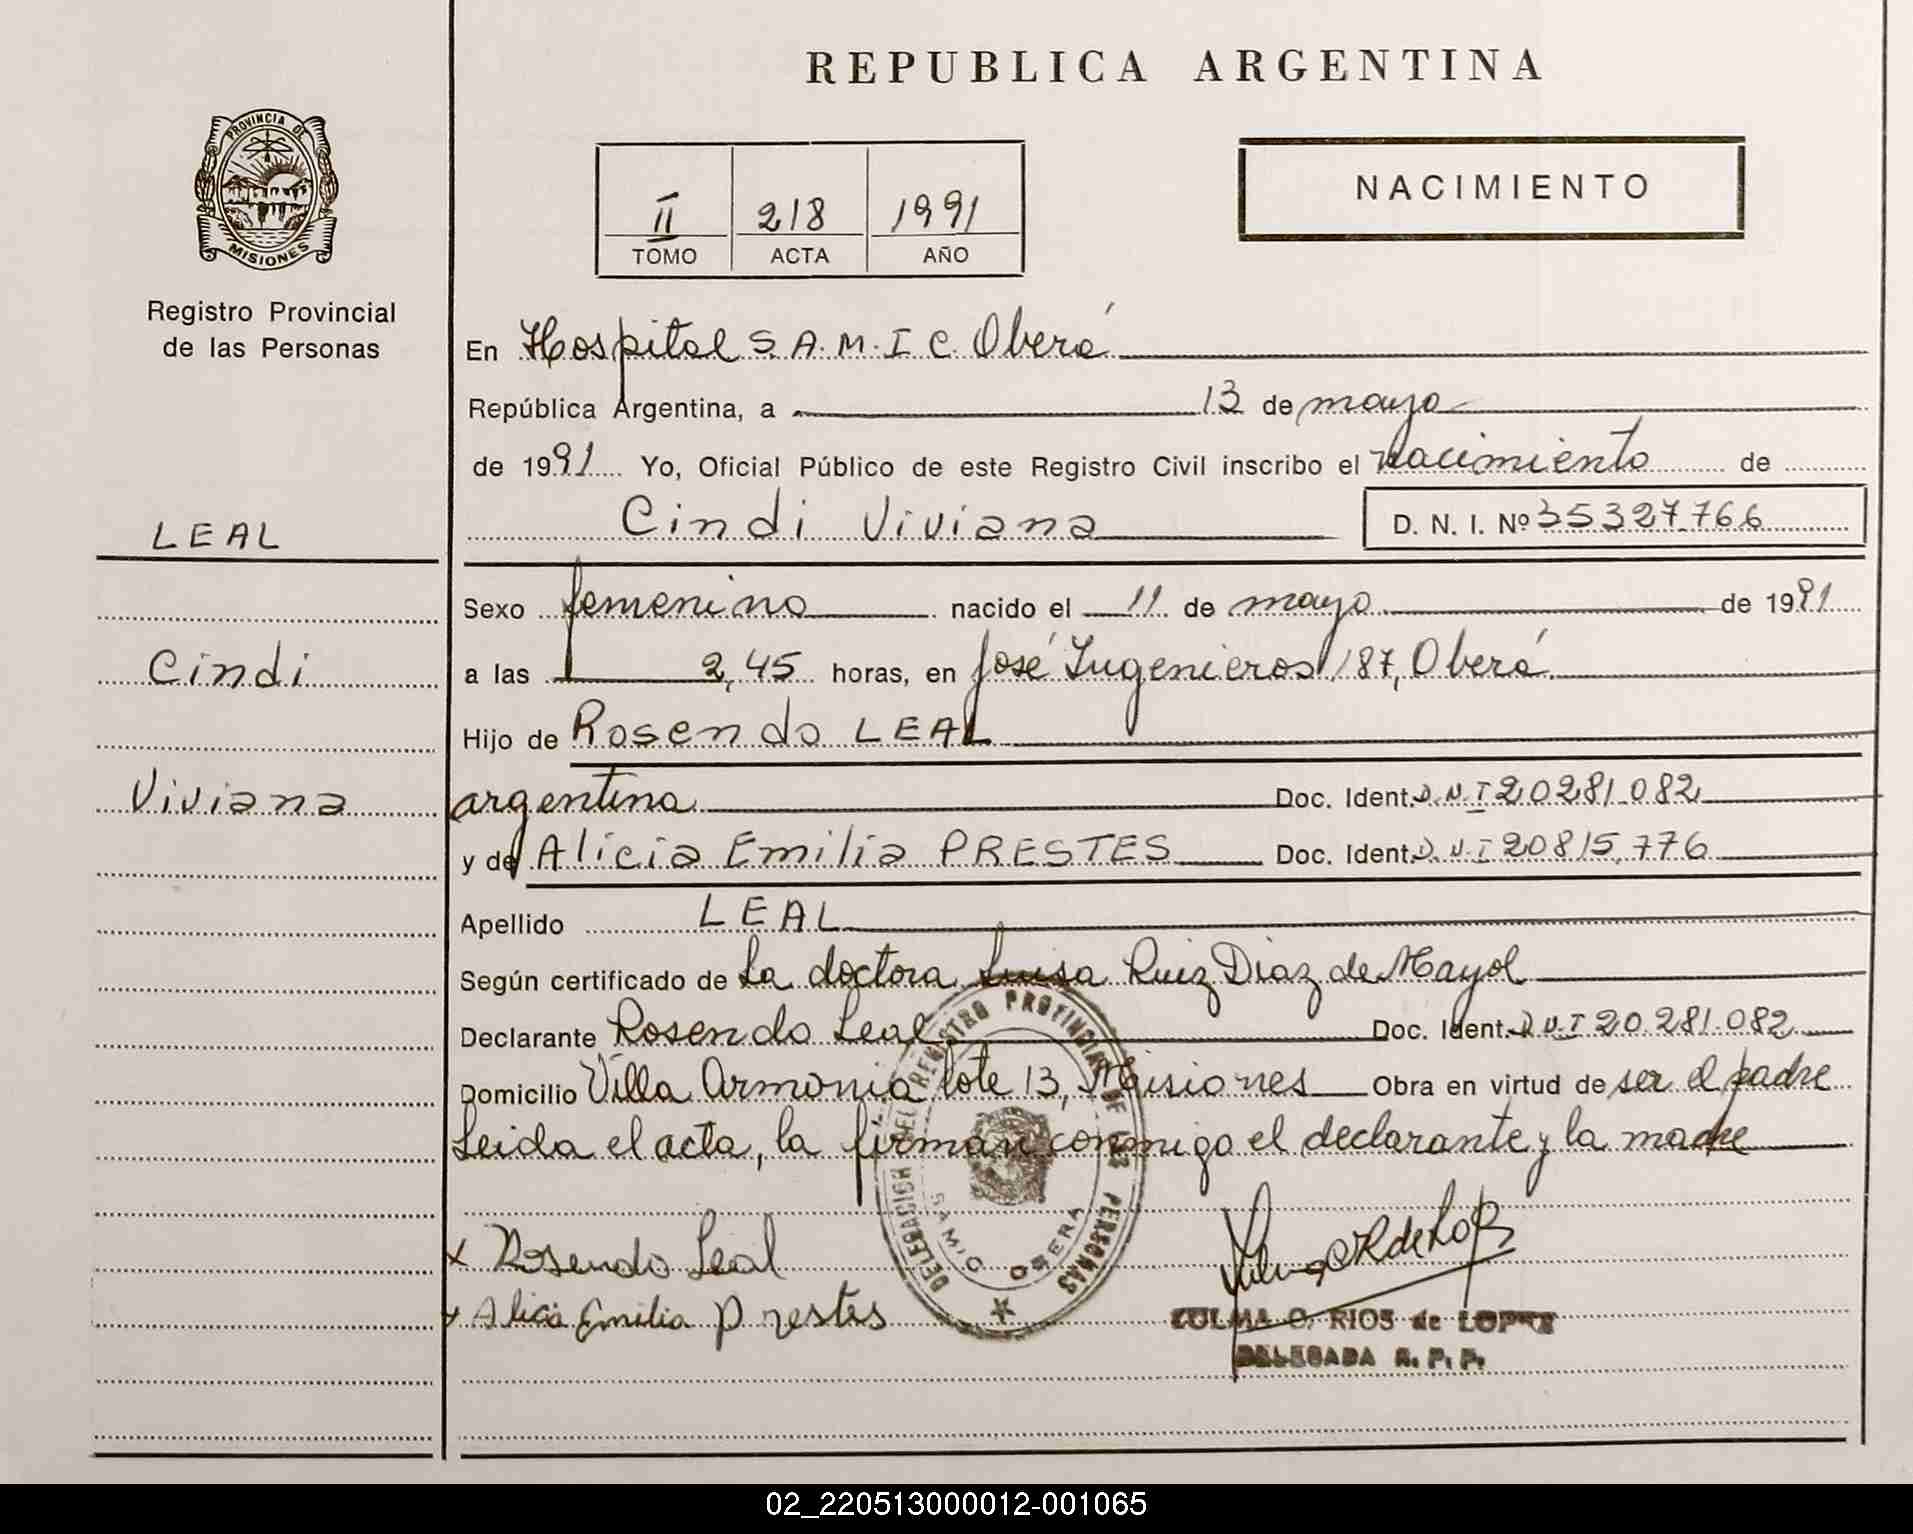 REPUBLICA ARGENTINA
PROVINCIA DE
MISIONES
Registro Provincial
de las Personas
II 218 1991
TOMO ACTA AÑO
NACIMIENTO
En Hospital S.A.M.I.C. Oberá
República Argentina, a 13 de mayo
de 1991 Yo, Oficial Público de este Registro Civil inscribo el nacimiento de
Cindi Viviana D. N. I. Nº 35327766
LEAL
Cindi
Viviana
Sexo femenino nacido el 11 de mayo de 1991
a las 2,45 horas, en José Ingenieros 187, Oberá
Hijo de Rosendo LEAL
argentina Doc. Ident. D.N.I 20281.082
y de Alicia Emilia PRESTES Doc. Ident. D.N.I 20815.776
Apellido LEAL
Según certificado de La doctora Luisa Ruiz Diaz de Mayol
Declarante Rosendo Leal Doc. Ident. D.N.I 20.281.082
Domicilio Villa Armonia lote 13, Misiones Obra en virtud de ser el padre
Leida el acta, la firman conmigo el declarante y la madre
DELEGACION DEL REGISTRO PROVINCIAL DE LAS PERSONAS
SAMIC OBERA
x Rosendo Leal
x Alicia Emilia Prestes
ZULMA C. RIOS de LOPEZ
DELEGADA R. P. P.
02_220513000012-001065